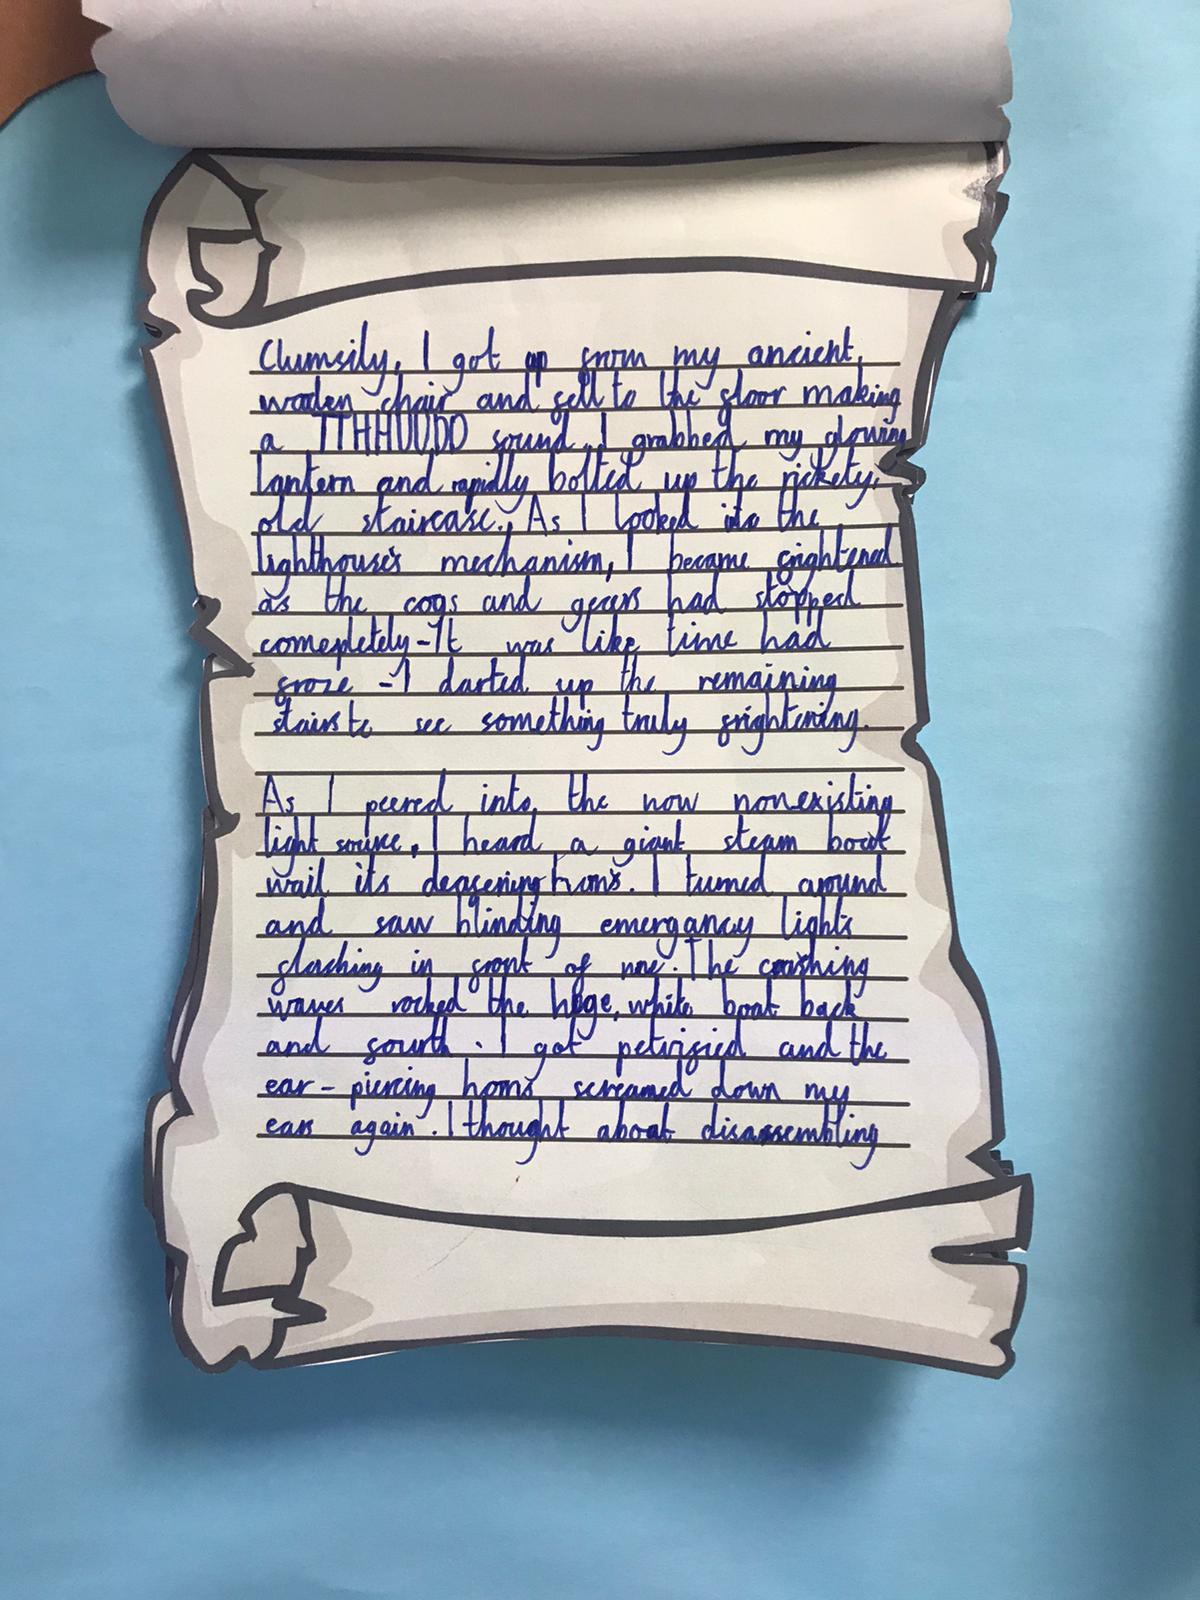 Clumsily, I got up from my ancient,
wooden chair and fell to the floor making
a TTHHUUDD sound. I grabbed my glowing
lantern and rapidly bolted up the rickety,
old staircase. As I looked into the
lighthouse's mechanism, I became frightened
as the cogs and gears had stopped
comepletely - It was like time had
froze - I darted up the remaining
stairs to see something truly frightening.
As I peered into the now nonexisting
light source, I heard a giant steam boat
wail its deafening horns. I turned around
and saw blinding emergancy lights
flashing in front of me. The crashing
waves rocked the huge, white boat back
and fourth. I got petrified and the
ear-piercing horns screamed down my
ears again. I thought about disassembling